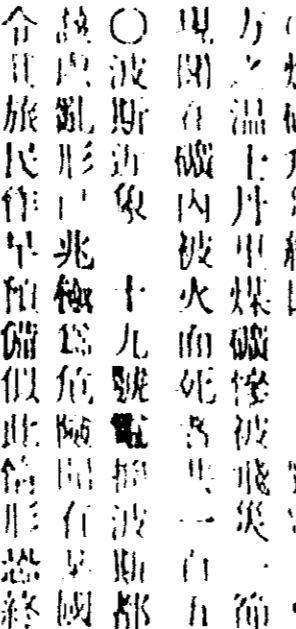 方之温士丹煤礦慘被飛災一節
現聞在礦內被火而死者共一百五
〇波斯近象 十九號電據波斯都
該處亂形已兆極爲危險聞有某國
令其旅民作早預備似此情形恐終